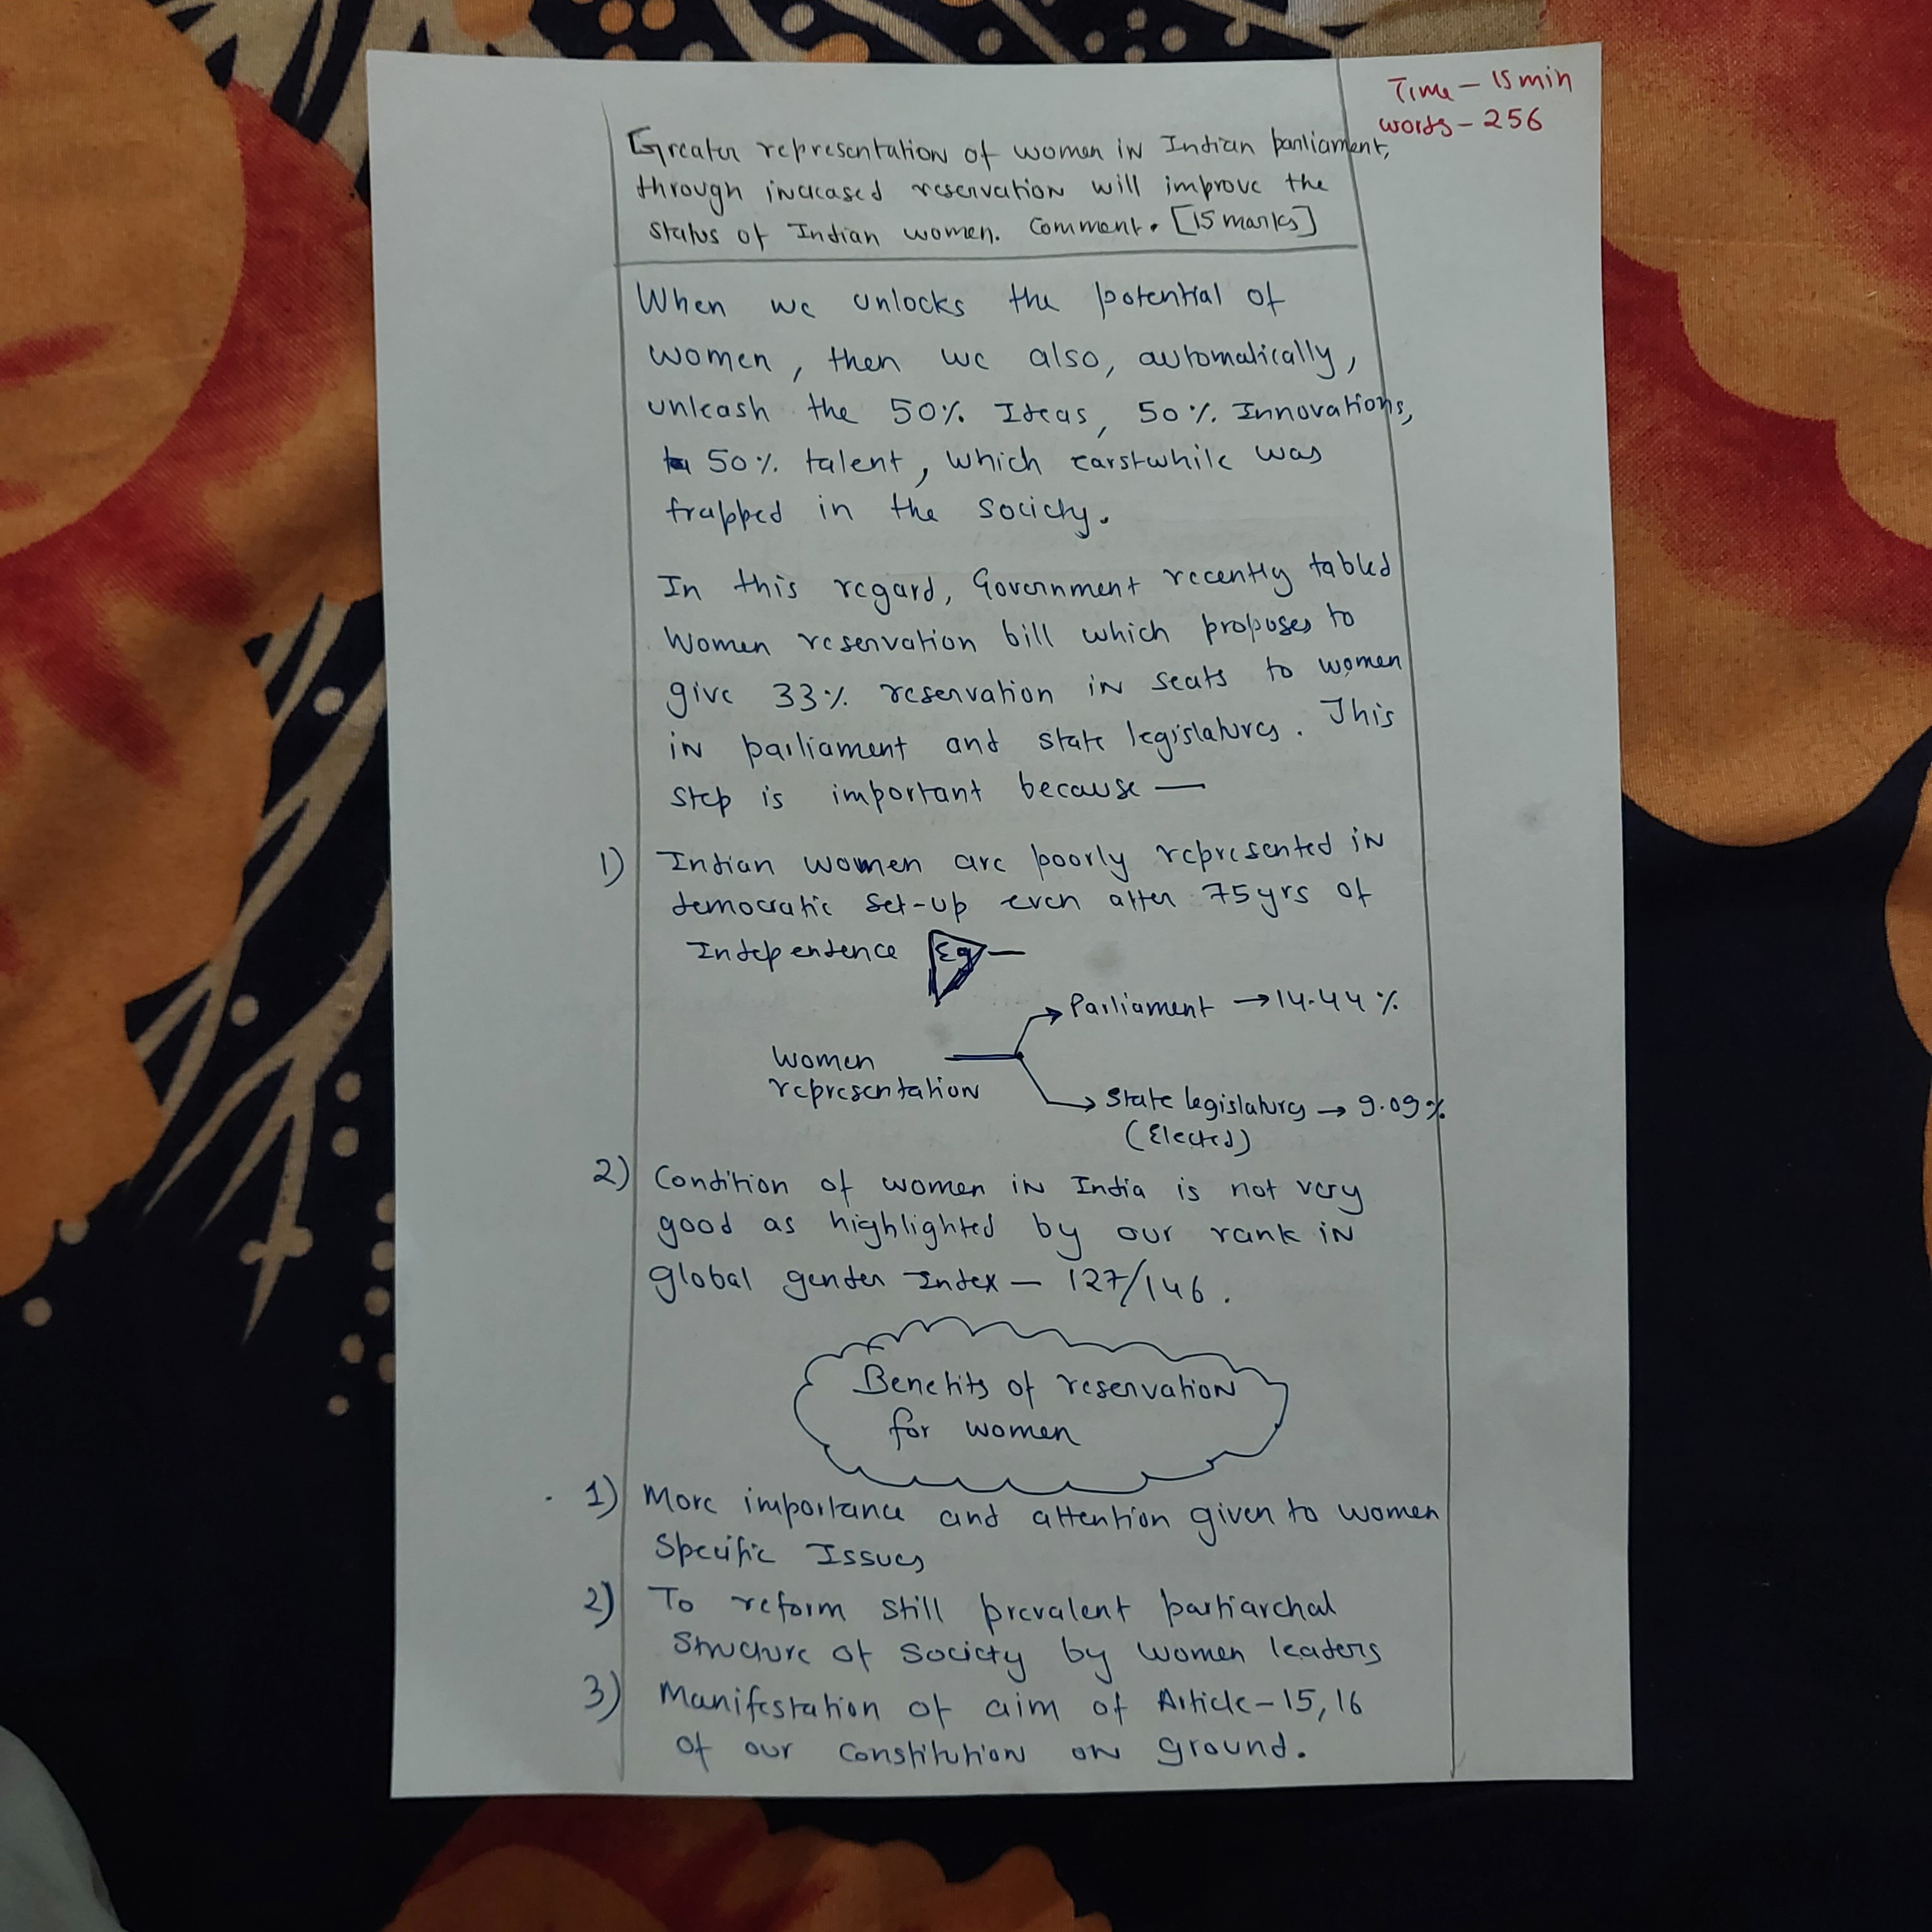 Time - 15 min
words - 256
Greater representation of women in Indian parliament,
through increased reservation will improve the
status of Indian women. Comment. [15 marks]
When we unlocks the potential of
women, then we also, automatically,
unleash the 50% Ideas, 50% Innovations,
50% talent, which earstwhile was
trapped in the society.
In this regard, Government recently tabled
Women reservation bill which proposes to
give 33% reservation in seats to women
in parliament and state legislatures. This
step is important because —
1) Indian women are poorly represented in
democratic set-up even after 75yrs of
Independence Eg —
Parliament → 14.44%
Women
representation
State legislatures → 9.09%
(Elected)
2) Condition of women in India is not very
good as highlighted by our rank in
global gender Index — 127/146.
Benefits of reservation
for women
1) More importance and attention given to women
Specific Issues
2) To reform still prevalent partiarchal
structure of society by women leaders
3) Manifestation of aim of Article-15, 16
of our Constitution on ground.